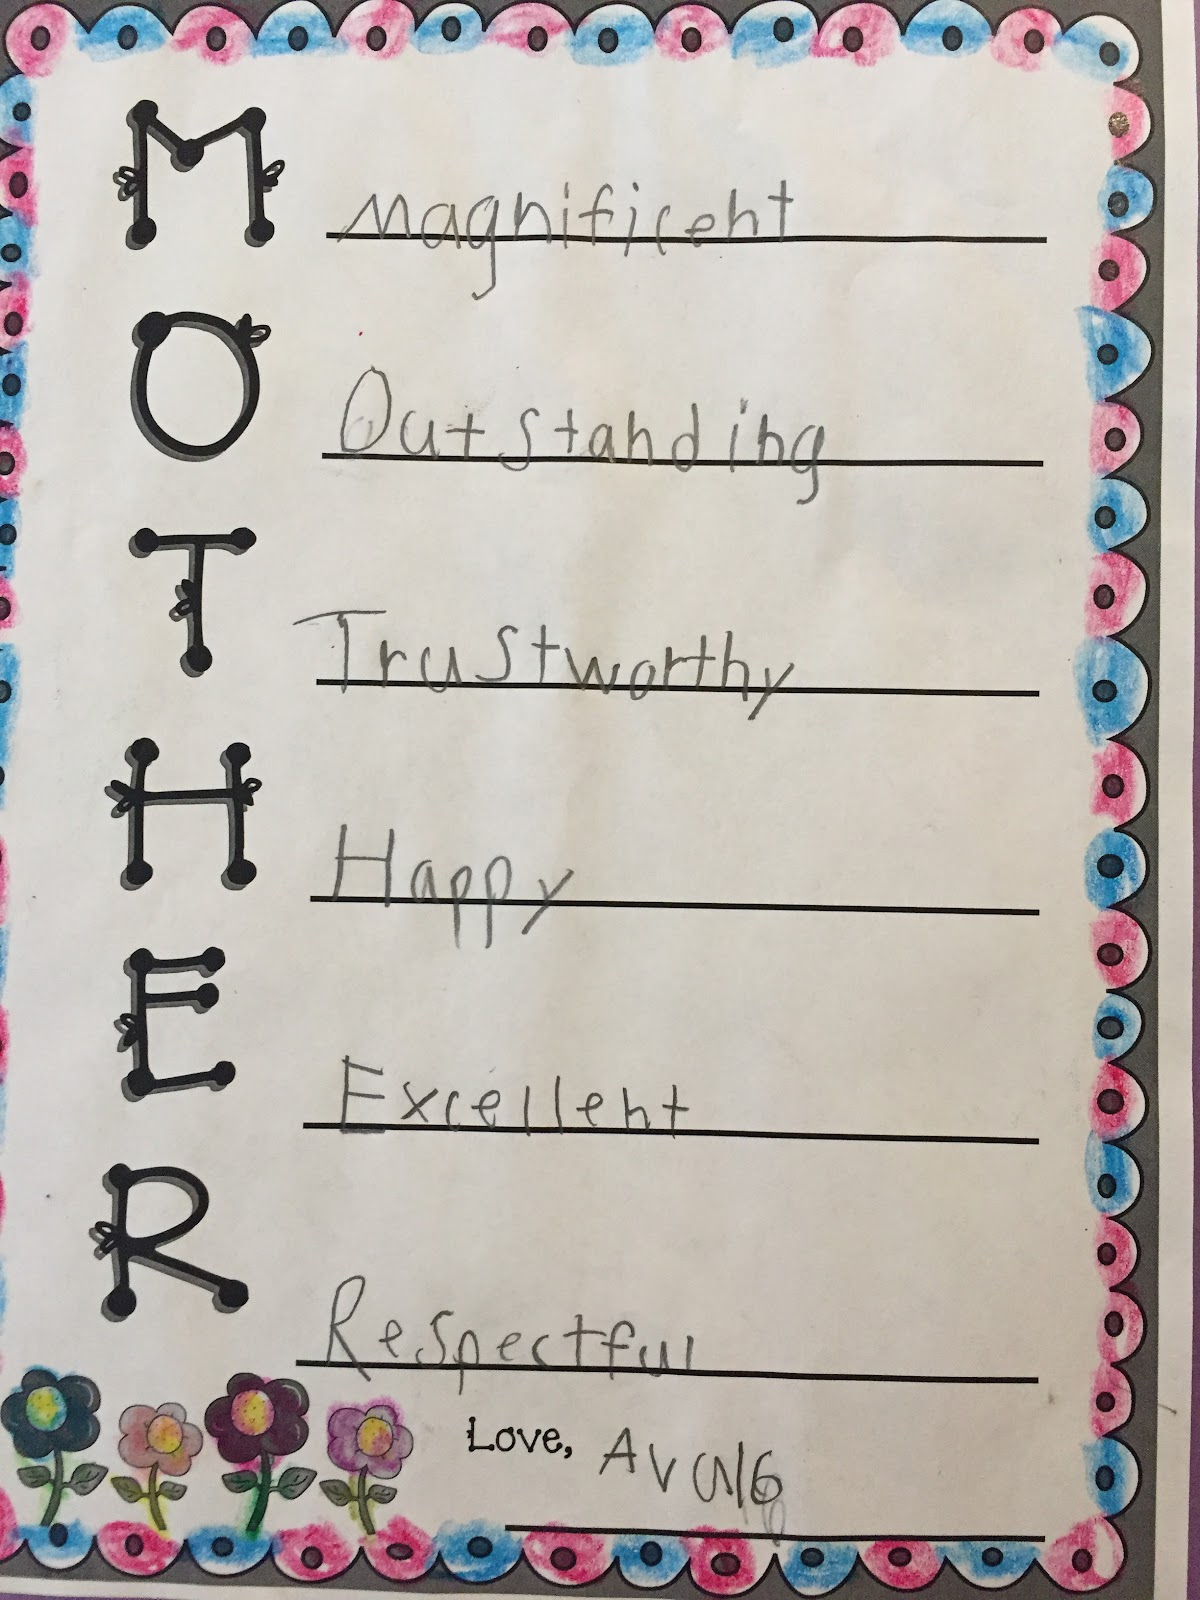 M Magnificent
O Outstanding
T Trustworthy
H Happy
E Excellent
R Respectful
Love,